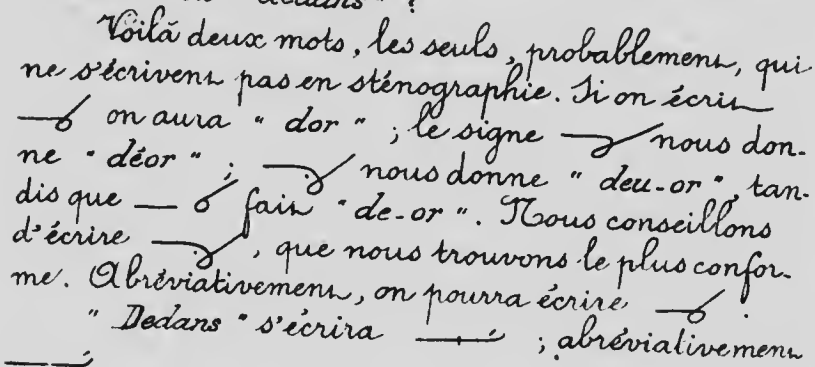 "Dedans" ?
Voilà deux mots, les seuls, probablement, qui
ne s'écrivent pas en sténographie. Si on écrit
on aura " dor " ; le signe nous don-
ne " déor " ; nous donne " deu-or ", tan-
dis que fait " de-or ". Nous conseillons
d'écrire , que nous trouvons le plus confor-
me. Abréviativement, on pourra écrire .
" Dedans " s'écrira ; abréviativement